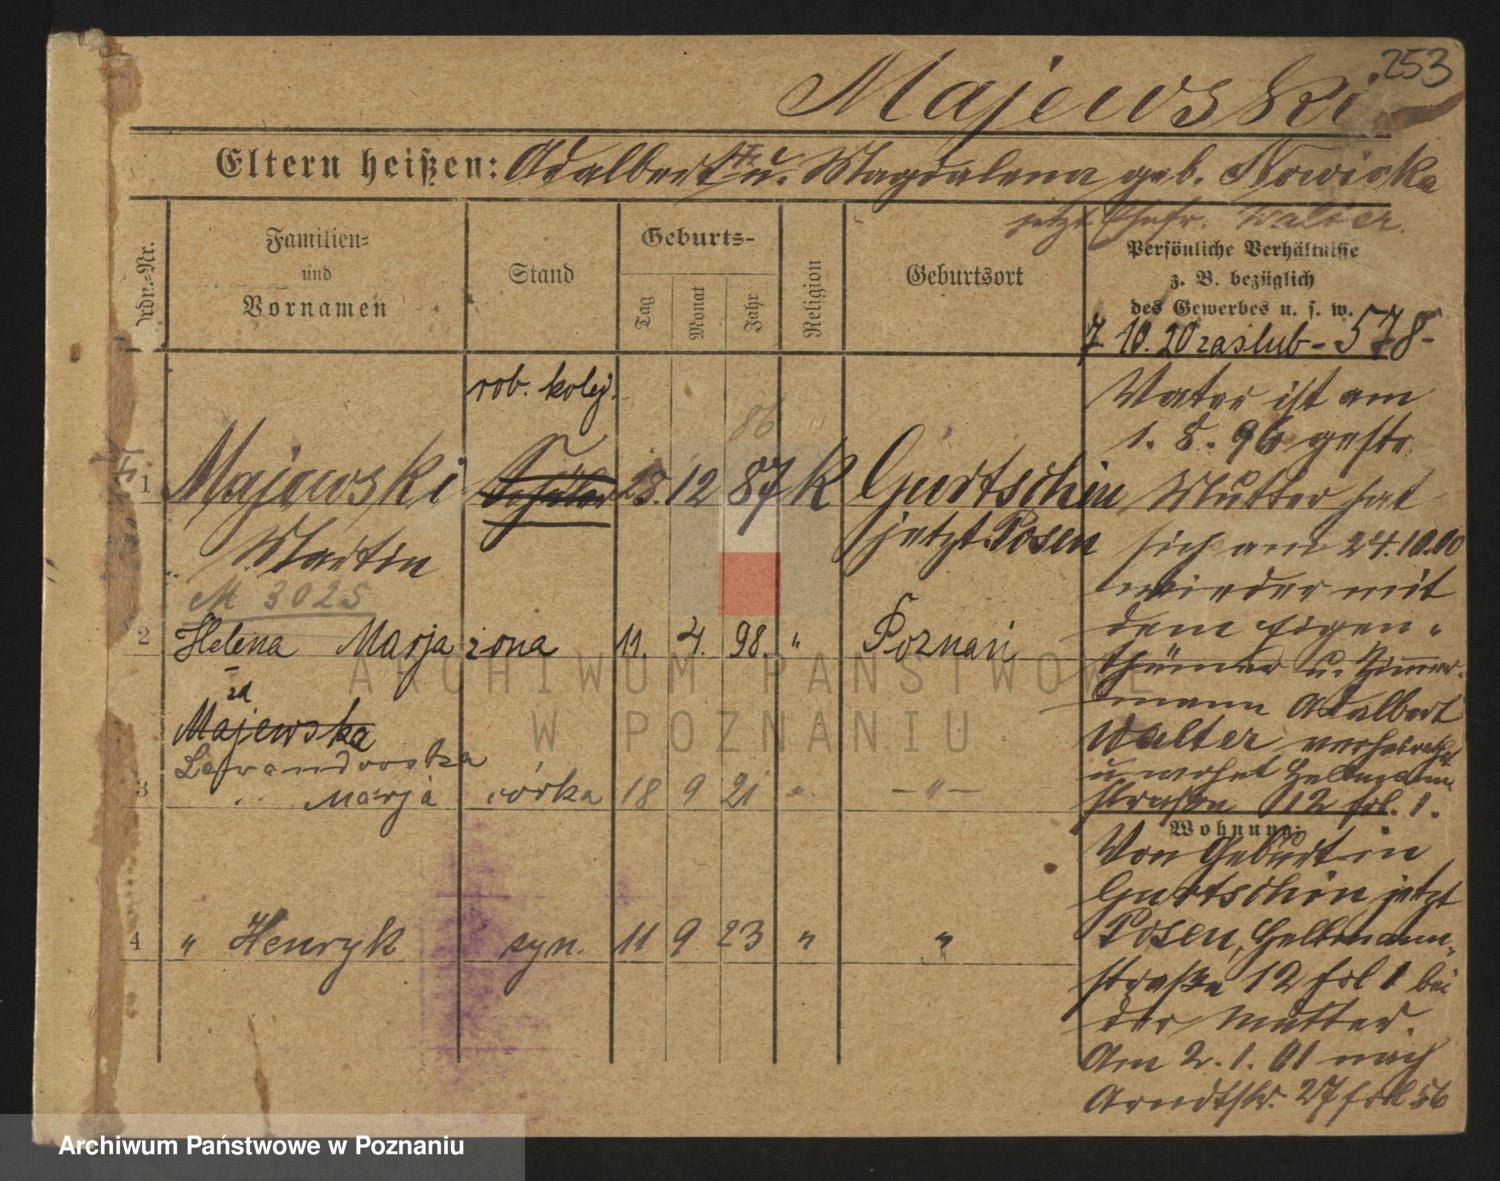 253
Majewski
Eltern heißen: Adalbert u. Magdalena geb. Nowicka
jetzt Ehefr. Walter.
Ordn.-Nr.
Familien-
und
Vornamen
Stand
Geburts-
Tag
Monat
Jahr
Religion
Geburtsort
Persönliche Verhältnisse
z. B. bezüglich
des Gewerbes u. s. w.
7. 10. 20 zaślub - 578-
rob. kolej.
86
1 Majewski 23. 12 87 K Gurtschin
jetzt Posen
Martin
M 3025
2 Helena Marja żona 11. 4. 98. " Poznań
zd
Majewska
Lewandowska
3 " Marja córka 18 9 21 " - " -
4 " Henryk syn. 11 9 23 " "
Vater ist am
1. 8. 96 gestr.
Mutter hat
sich am 24.10.00
wieder mit
dem Eigen-
thümer u. Zimmer-
mann Adalbert
Walter verheirathet
u. wohnt Hellmann
straße 12 frl. 1.
Wohnung:
Von Geburt in
Gurtschin jetzt
Posen, Hellmann-
straße 12 frl 1 bei
der Mutter.
Am 2. 1. 01 nach
Arndtstr. 27 frl 56
ARCHIWUM PAŃSTWOWE
W POZNANIU
Archiwum Państwowe w Poznaniu